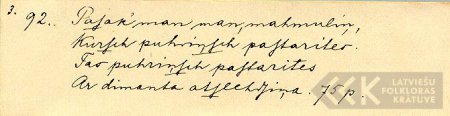 3.
92. Pasak' man man, mahmuliņ,
Kursch puhrinsch pastarites.
Tas puhrinsch pastarites
Ar dimanta atslehdsiņa. 75 p.
LATVIEŠU
FOLKLORAS
KRĀTUVE